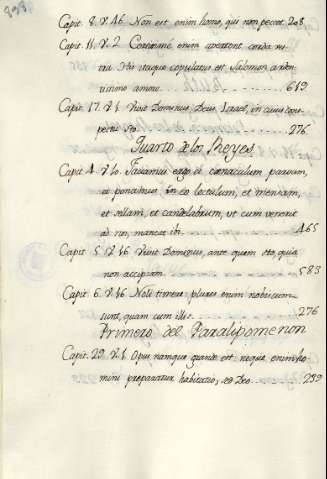 Capit. 8. V. 46. Non est enim homo, qui non peccet. 208
Capit. 11. V. 2. Certissimè enim avertent corda ves-
tra. His itaque copulatus est Salomon arden-
tissimo amore. 619
Capit. 17. V. 1. Vivit Dominus Deus Israel, in cuius cons-
pectu sto. 276
Quarto de los Reyes
Capit. 4. V. 10. Faciamus ergo ei coenaculum parvum,
et ponamus in eo lectulum, et mensam,
et sellam, et candelabrum, ut cum venerit
ad nos, maneat ibi. 465
Capit. 5. V. 16. Vivit Dominus, ante quem sto, quia
non accipiam. 583
Capit. 6. V. 16. Noli timere: plures enim nobiscum
sunt, quam cum illis. 276
Primero del Paralipomenon
Capit. 29. V. 1. Opus namque grande est, neque enim ho-
mini preparatur habitatio, sed Deo. 239